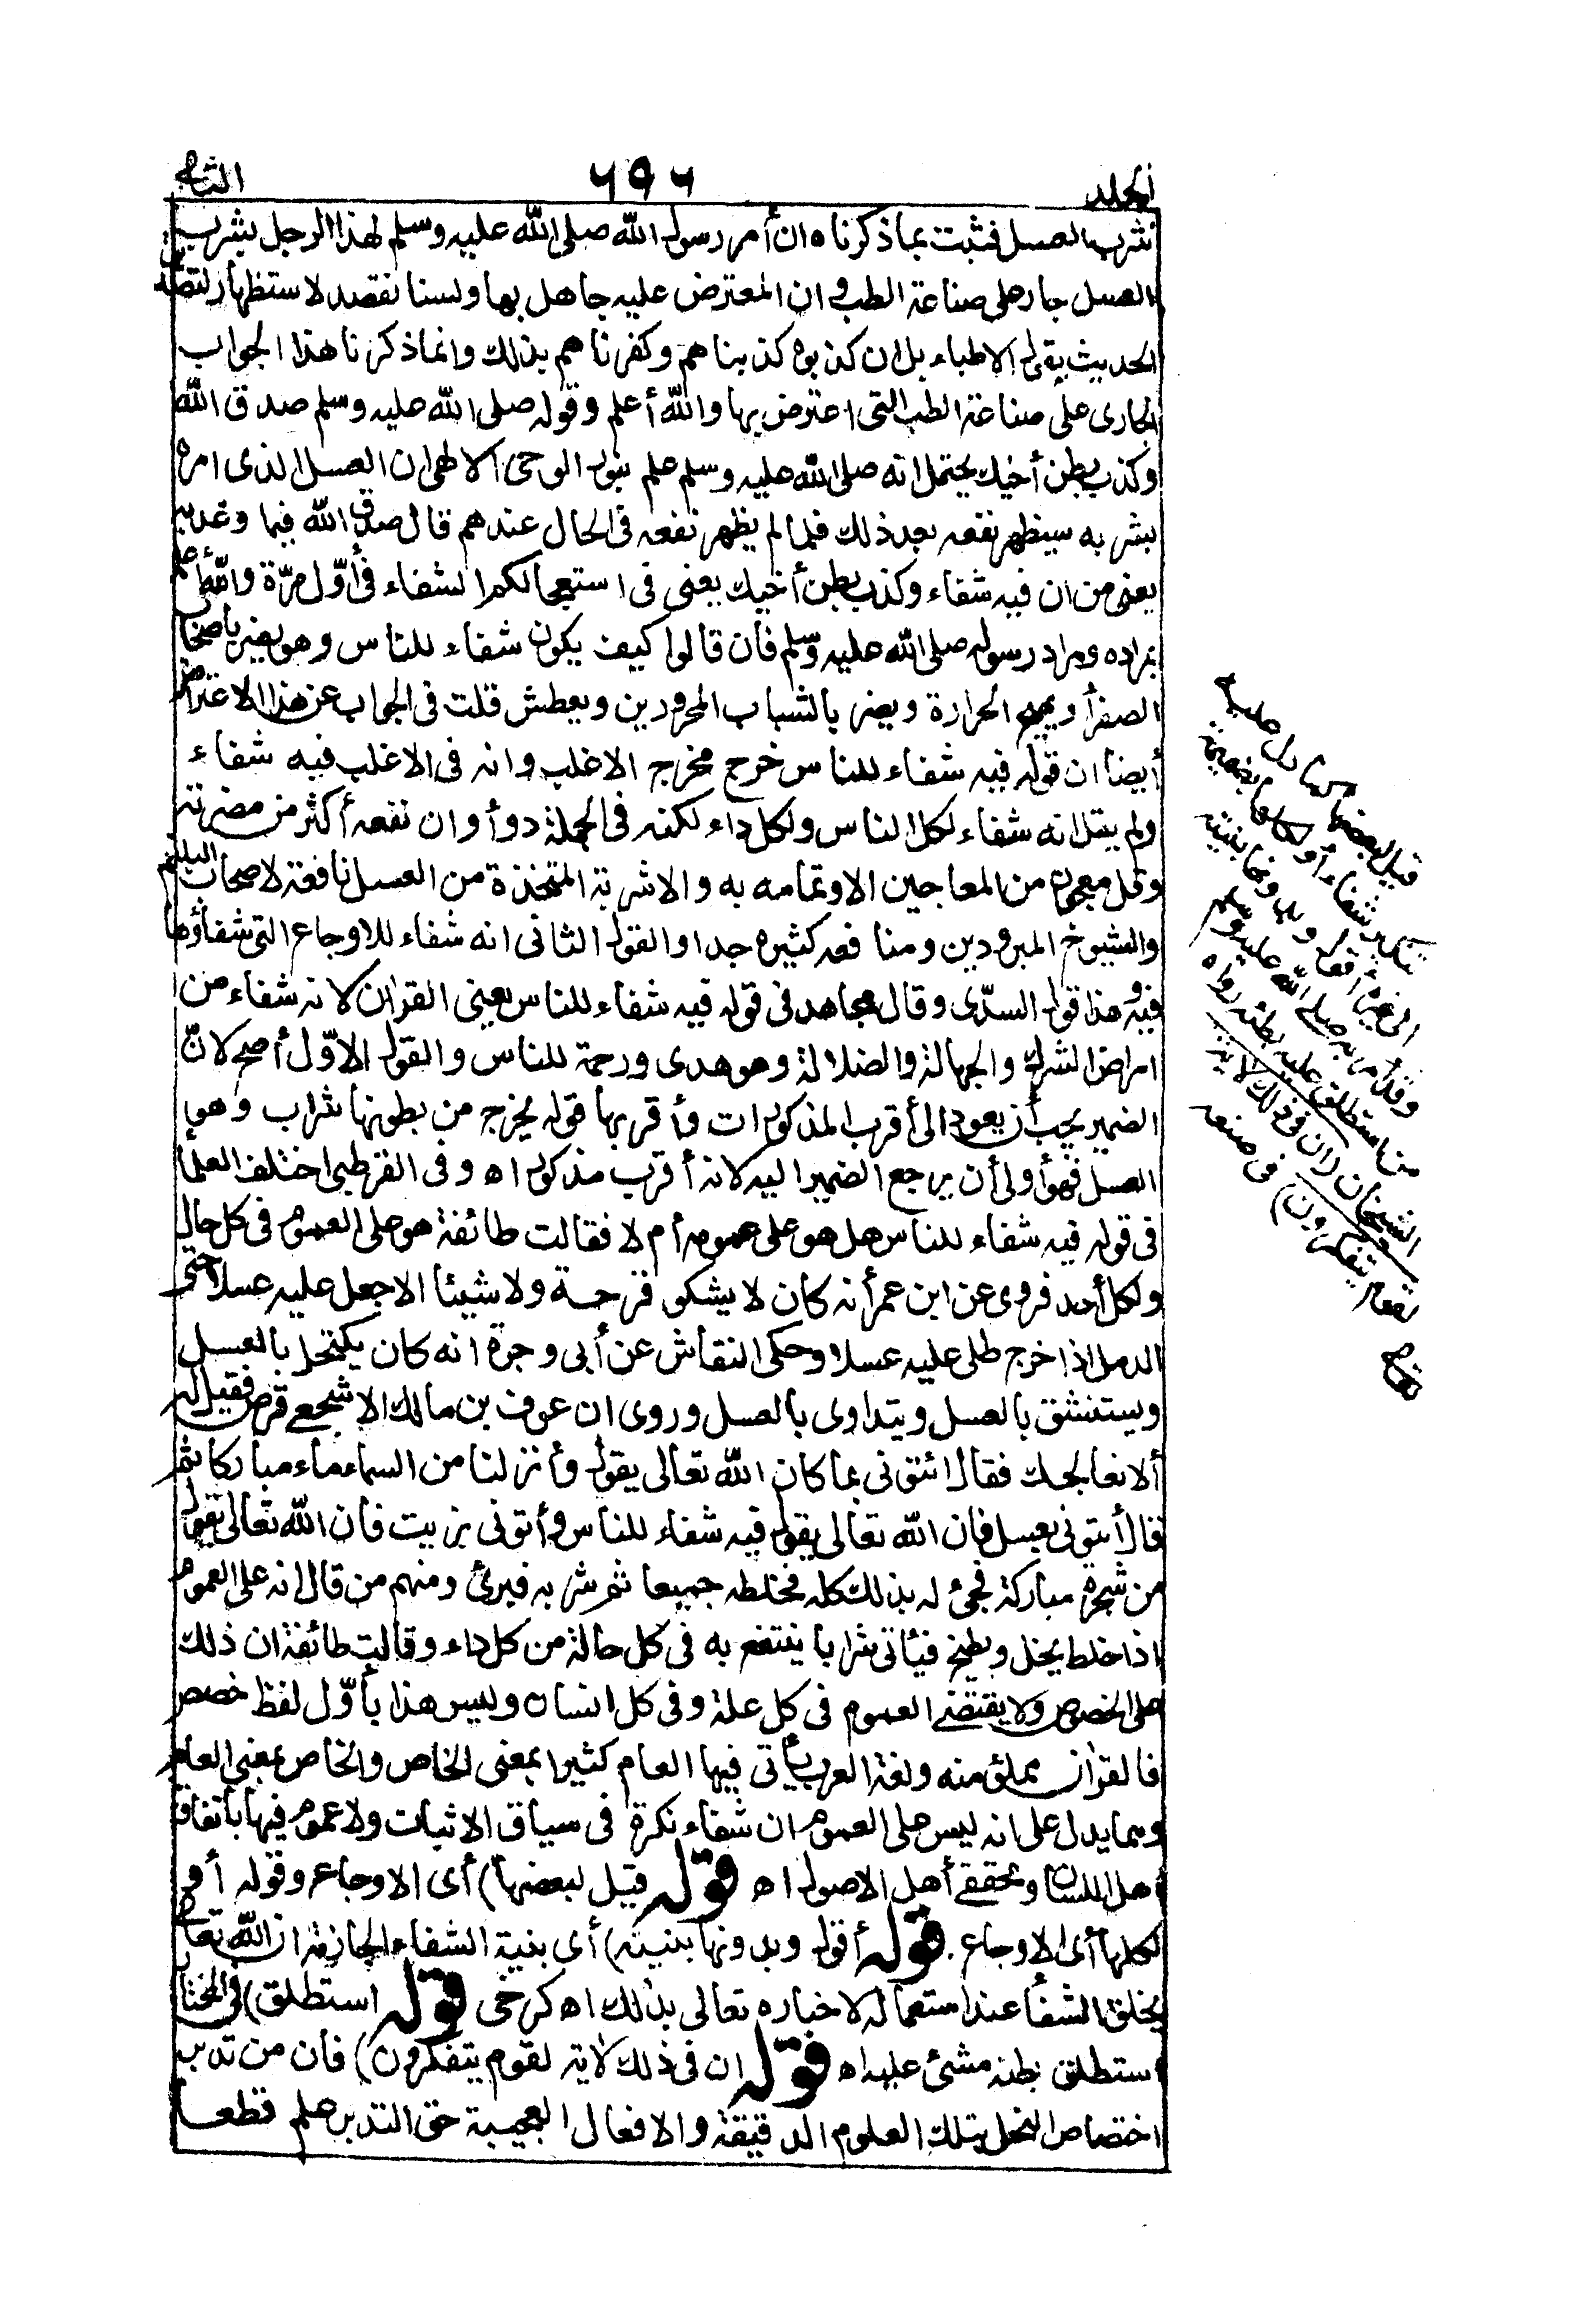 المجلد ٦٩٦ الثاني
شرب العسل فثبت بما ذكرناه ان أمر رسول الله صلى الله عليه وسلم لهذا الرجل بشرب
العسل جار على صناعة الطب وان المعترض عليه جاهل بها ولسنا نقصد الاستظهار لتصديق
الحديث بقول الاطباء بل ان كذبوه كذبناهم وكفرناهم بذلك وانما ذكرنا هذا الجواب
الجارى على صناعة الطب التى اعترض بها والله أعلم وقوله صلى الله عليه وسلم صدق الله
وكذب بطن أخيك يحتمل انه صلى الله عليه وسلم علم بنور الوحى الالهى ان العسل الذى امره
بشربه سيظهر نفعه بعد ذلك فلما لم يظهر نفعه فى الحال عندهم قال صدق الله فيما وعد به
يعنى من ان فيه شفاء وكذب بطن أخيك يعنى فى استعجالكم الشفاء فى أوّل مرّة والله أعلم
بمراده ومراد رسوله صلى الله عليه وسلم فان قالوا كيف يكون شفاء للناس وهو يضر باصحاب
الصفرأ ويهيج الحرارة ويضر بالشباب المحرورين ويعطش قلت فى الجواب عن هذا الاعتراض
أيضا ان قوله فيه شفاء للناس خرج مخرج الاغلب وانه فى الاغلب فيه شفاء
ولم يقل انه شفاء لكل الناس ولكل داء لكنه فى الجملة دوأ وان نفعه أكثر من مضرته
وقل معجون من المعاجين الا وتمامه به والاشربة المتخذة من العسل نافعة لاصحاب البلغم
والشيوخ المبرودين ومنافعه كثيره جدا والقول الثانى انه شفاء للاوجاع التى شفاؤها
فيه وهذا قول السدّى وقال مجاهد فى قوله فيه شفاء للناس يعنى القرأن لانه شفاء من
امراض الشرك والجهالة والضلالة وهو هدى ورحمة للناس والقول الاوّل أصح لانّ
الضمير يجب أن يعود الى أقرب المذكورات وأقربها قوله يخرج من بطونها شراب وهو
العسل فهو أولى أن يرجع الضمير اليه لانه أقرب مذكور اه وفى القرطبى اختلف العلمأ
فى قوله فيه شفاء للناس هل هو على عمومه أم لا فقالت طائفة هو على العموم فى كل حال
ولكل أحد فروى عن ابن عمر أنه كان لا يشكو قرحة ولا شيئا الا جعل عليه عسلا حتى
الدمل اذا خرج طلى عليه عسلا وحكى النقاش عن أبى وجرة انه كان يكتحل بالعسل
ويستنشق بالعسل ويتداوى بالعسل وروى ان عوف بن مالك الاشجعى مرض فقيل له
ألا نعالجك فقال ائتونى بماء كان الله تعالى يقول وأنزلنا من السماء ماء مباركا ثم
قال أيتونى بعسل فان الله تعالى يقول فيه شفاء للناس وأتونى بزيت فان الله تعالى يقول
من شجرة مباركة فجئ له بذلك كله فخلطه جميعا ثم شربه فبرئ ومنهم من قال انه على العموم
اذا خلط بخل وطبخ فيأتى شرابا ينتفع به فى كل حالة من كل داء وقالت طائفة ان ذلك
على الخصوص ولا يقتضى العموم فى كل علة وفى كل انسان وليس هذا بأوّل لفظ خصص
فالقرأن مملؤ منه ولغة العرب يأتى فيها العام كثيرا بمعنى الخاص والخاص بمعنى العام
ومما يدل على انه ليس على العموم ان شفاء نكرة فى سياق الاثبات ولا عموم فيها باتفاق
أهل اللسان ومحققى أهل الاصول اه قوله قيل لبعضها) أى الاوجاع وقوله أو
لكلها أى الاوجاع. قوله أقول وبدونها بنيته) أى بنية الشفاء الجازمة ان الله تعالى
يخلق الشفأ عند استعماله لاخباره تعالى بذلك اه كرخى قوله استطلق) فى المختار
استطلق بطنه مشى عليه اه قوله ان فى ذلك لاية لقوم يتفكرون) فان من تدبر
اختصاص النحل بتلك العلوم الدقيقة والافعال العجيبة حق التدبر علم قطعا
قيل لبعضها كما دل عليه
تنكير شفاء أو لكلها بضميمته
الى غيره أقول وبدونها بنيته
وقد أمر به صلى الله عليه وسلم
من استطلق عليه بطنه رواه
الشيخان (ان فى ذلك لاية
لقوم يتفكرون) فى صنعه
تعالى